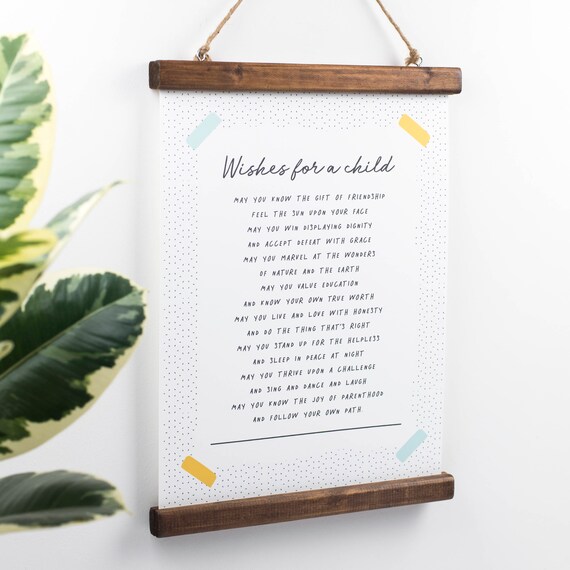 Wishes for a child
MAY YOU KNOW THE GIFT OF FRIENDSHIP
FEEL THE SUN UPON YOUR FACE
MAY YOU WIN DISPLAYING DIGNITY
AND ACCEPT DEFEAT WITH GRACE
MAY YOU MARVEL AT THE WONDERS
OF NATURE AND THE EARTH
MAY YOU VALUE EDUCATION
AND KNOW YOUR OWN TRUE WORTH
MAY YOU LIVE AND LOVE WITH HONESTY
AND DO THE THING THAT'S RIGHT
MAY YOU STAND UP FOR THE HELPLESS
AND SLEEP IN PEACE AT NIGHT
MAY YOU THRIVE UPON A CHALLENGE
AND SING AND DANCE AND LAUGH
MAY YOU KNOW THE JOY OF PARENTHOOD
AND FOLLOW YOUR OWN PATH.